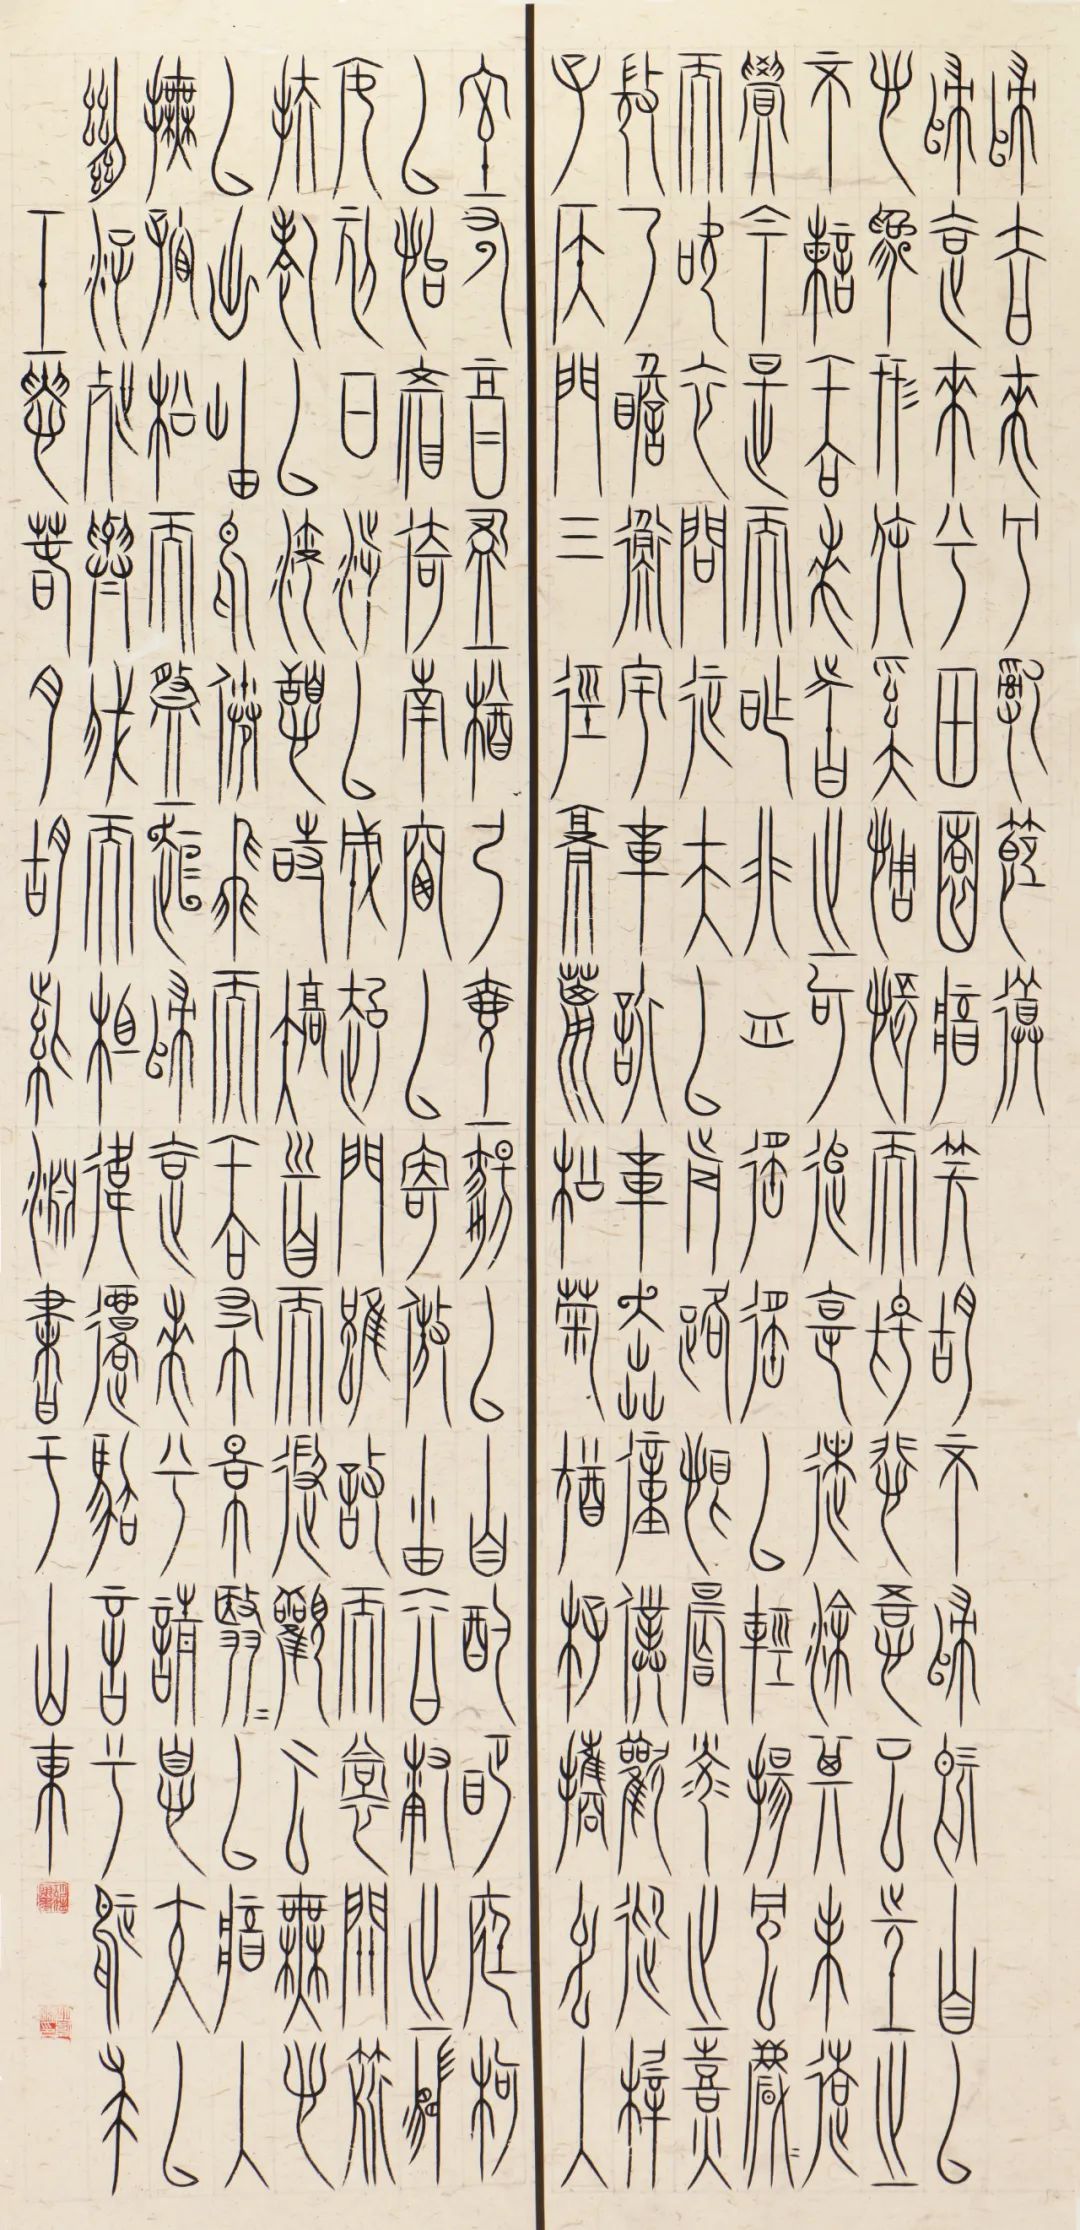 歸去來兮辭節選
歸去來兮田園將蕪胡不歸既自以
心為形役奚惆悵而獨悲悟已往之
不諫知來者之可追實迷途其未遠
覺今是而昨非舟遙遙以輕颺風飄飄
而吹衣問征夫以前路恨晨光之熹
微乃瞻衡宇載欣載奔僮僕歡迎稚
子候門三徑就荒松菊猶存攜幼入
室有酒盈樽引壺觴以自酌眄庭柯
以怡顏倚南窗以寄傲審容膝之易
安園日涉以成趣門雖設而常關策
扶老以流憩時矯首而遐觀雲無心
以出岫鳥倦飛而知還景翳翳以將入
撫孤松而盤桓歸去來兮請息交以
絕游世與我而相違復駕言兮焉求
壬寅春月胡紫淵書于山東